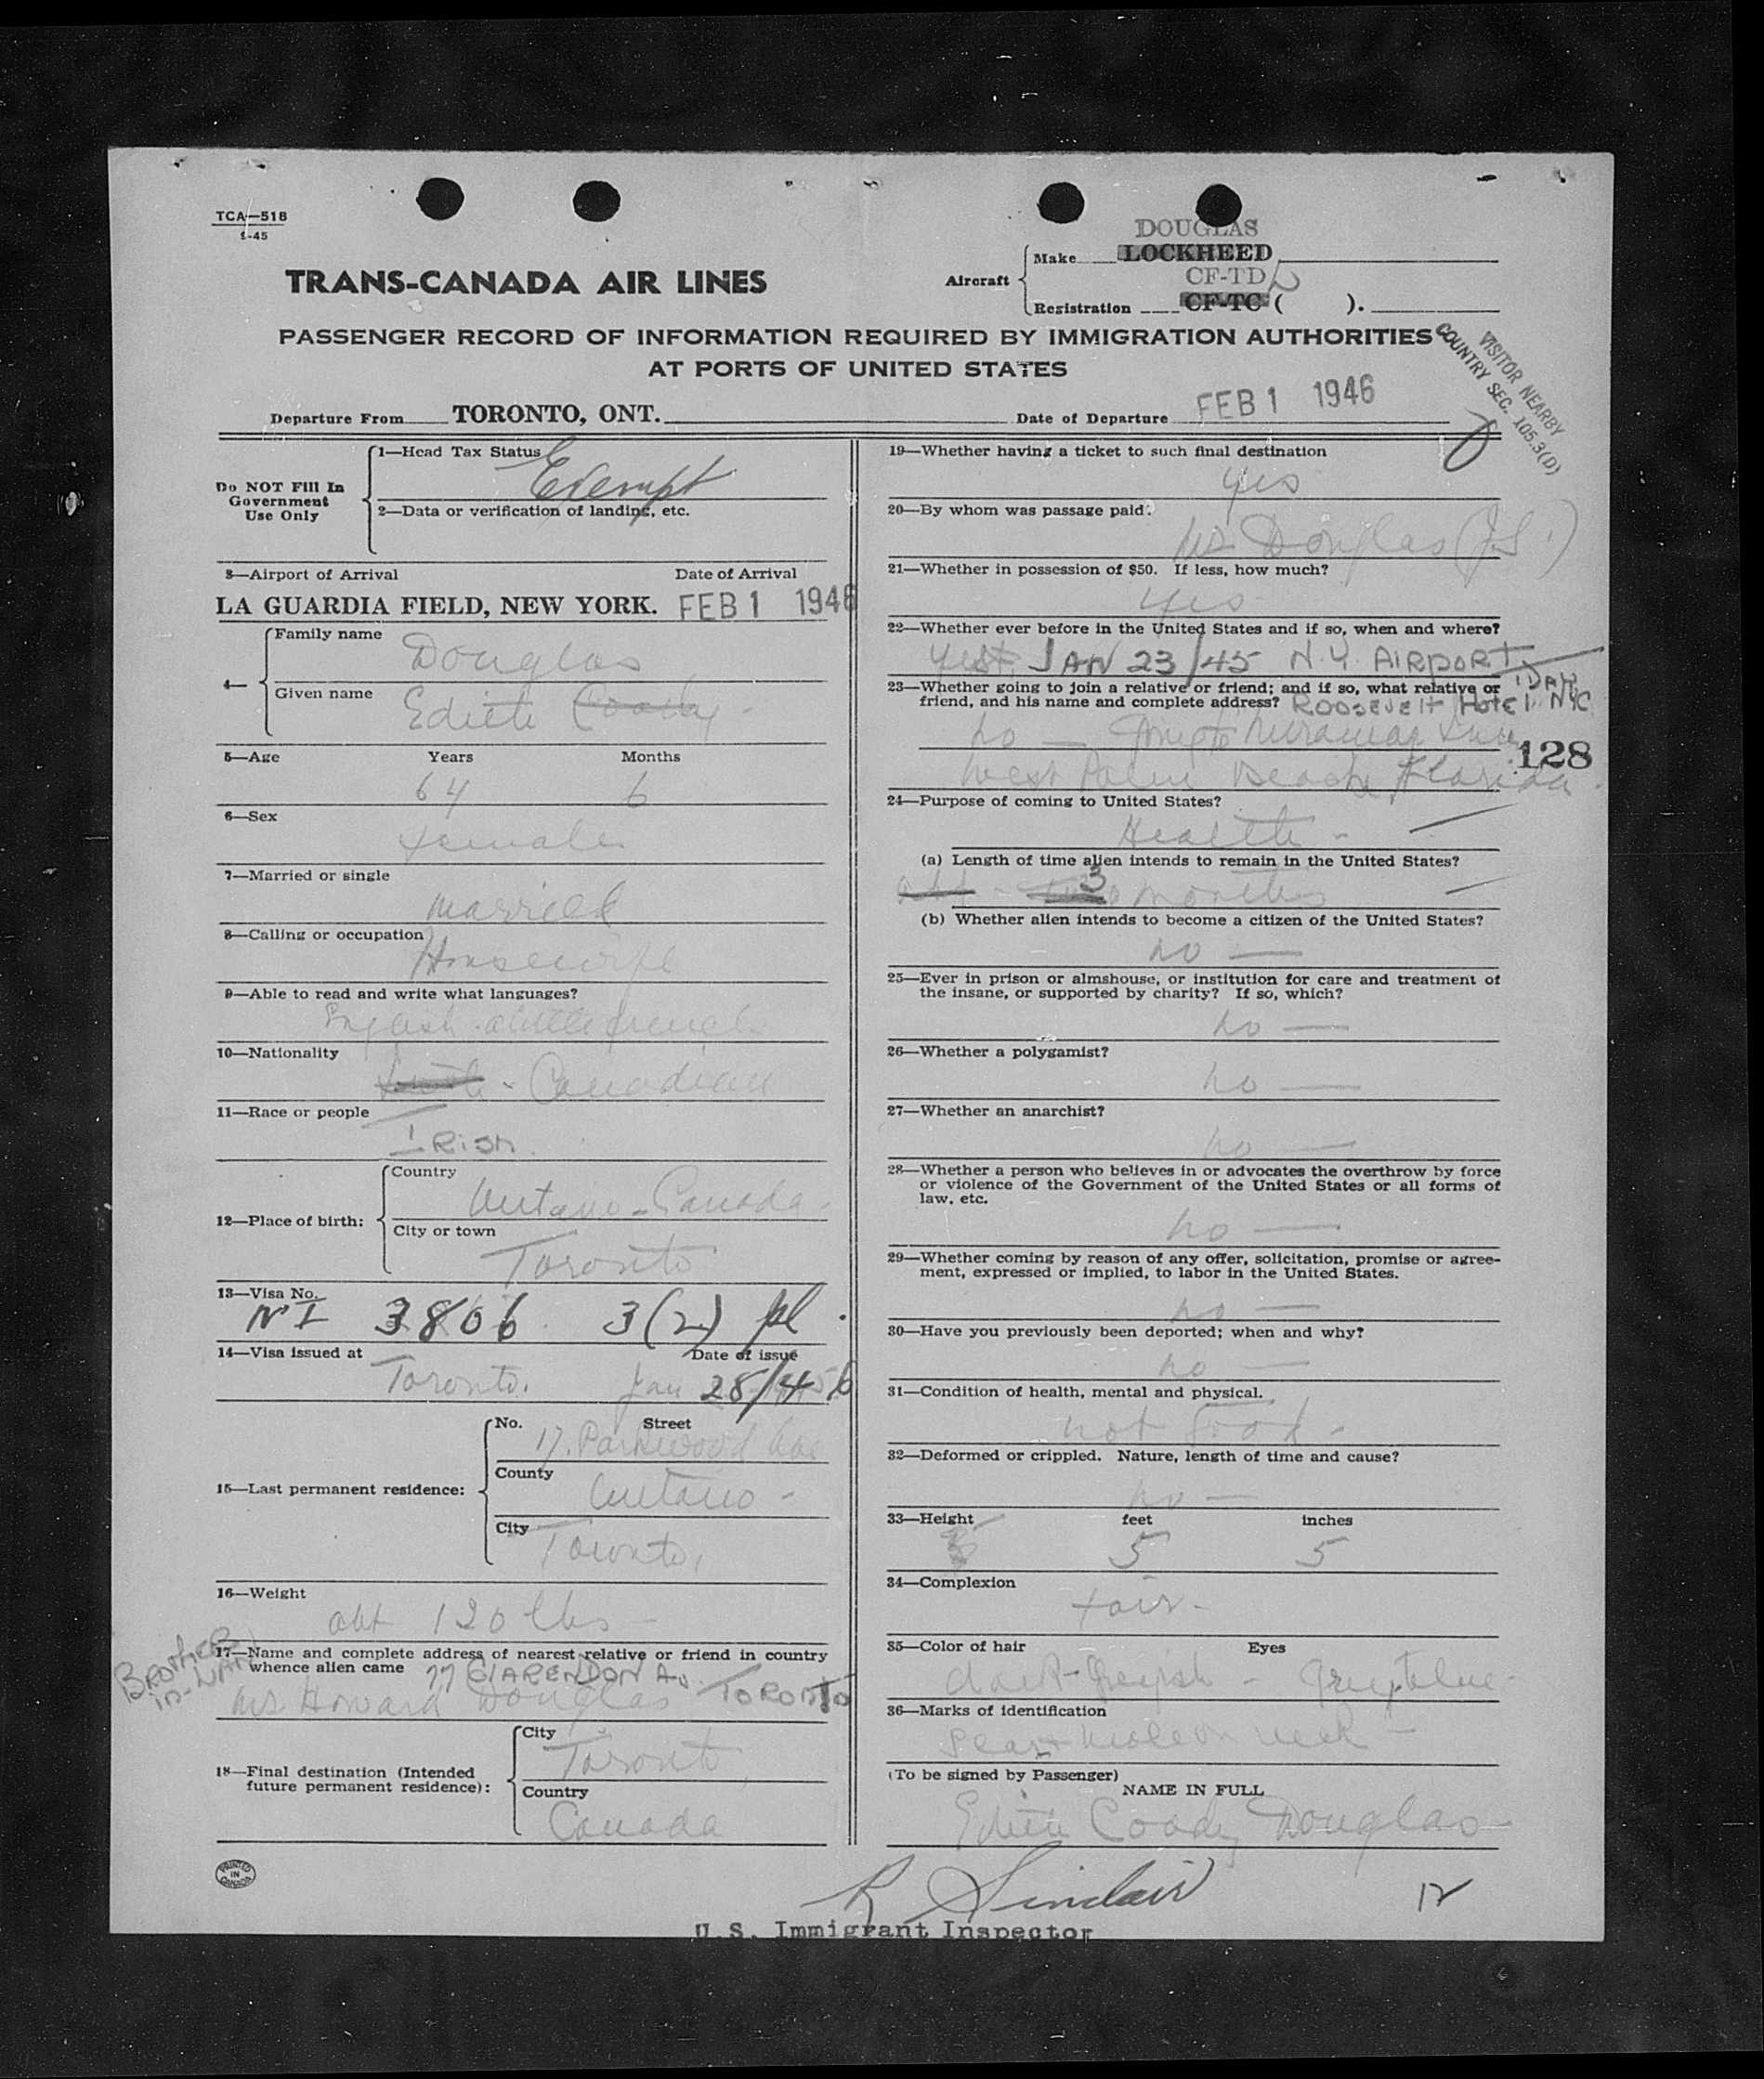 TCA—518
1-45
TRANS-CANADA AIR LINES
Aircraft
Make
DOUGLAS
LOCKHEED
CF-TD
Registration CF-TC ( ).
PASSENGER RECORD OF INFORMATION REQUIRED BY IMMIGRATION AUTHORITIES
AT PORTS OF UNITED STATES
VISITOR NEARBY
COUNTRY SEC. 105.3(D)
Departure From TORONTO, ONT.
Date of Departure FEB 1 1946
Do NOT Fill In
Government
Use Only
1—Head Tax Status
Exempt
2—Data or verification of landing, etc.
3—Airport of Arrival Date of Arrival
LA GUARDIA FIELD, NEW YORK. FEB 1 1946
4—
Family name
Douglas
Given name
Edith Coady
5—Age Years Months
64 6
6—Sex
female
7—Married or single
married
8—Calling or occupation
Housewife
9—Able to read and write what languages?
English - a little french
10—Nationality
- Canadian
11—Race or people
IRISH
12—Place of birth:
Country
Ontario - Canada
City or town
Toronto
13—Visa No.
NI 3806 3(2) pl.
14—Visa issued at Date of issue
Toronto. Jan 28/46
15—Last permanent residence:
No. Street
17. Parkwood Ave
County
Ontario -
City
Toronto,
16—Weight
abt 120 lbs -
17—Name and complete address of nearest relative or friend in country
whence alien came 77 CLARENDON Av TORONTO
BROTHER
in-LAW
Mr. Howard Douglas
18—Final destination (Intended
future permanent residence):
City
Toronto
Country
Canada
PRINTED
IN
CANADA
19—Whether having a ticket to such final destination
yes
20—By whom was passage paid?
Mr Douglas (J.S.)
21—Whether in possession of $50. If less, how much?
yes
22—Whether ever before in the United States and if so, when and where?
yes JAN 23/45 N.Y. AIRPORT
23—Whether going to join a relative or friend; and if so, what relative or
friend, and his name and complete address? ROOSEVELT HOTEL NYC
1 DAY
no — Miramar
128
West Palm Beach, Florida.
24—Purpose of coming to United States?
Health -
(a) Length of time alien intends to remain in the United States?
3 months
(b) Whether alien intends to become a citizen of the United States?
no —
25—Ever in prison or almshouse, or institution for care and treatment of
the insane, or supported by charity? If so, which?
no —
26—Whether a polygamist?
no —
27—Whether an anarchist?
no —
28—Whether a person who believes in or advocates the overthrow by force
or violence of the Government of the United States or all forms of
law, etc.
no —
29—Whether coming by reason of any offer, solicitation, promise or agree-
ment, expressed or implied, to labor in the United States.
no —
30—Have you previously been deported; when and why?
no —
31—Condition of health, mental and physical.
not good -
32—Deformed or crippled. Nature, length of time and cause?
no —
33—Height feet inches
5 5
34—Complexion
fair -
35—Color of hair Eyes
dark-Greyish - Grey blue -
36—Marks of identification
mole on neck —
(To be signed by Passenger)
NAME IN FULL
Edith Coady Douglas
R Sinclair
12
U.S. Immigrant Inspector